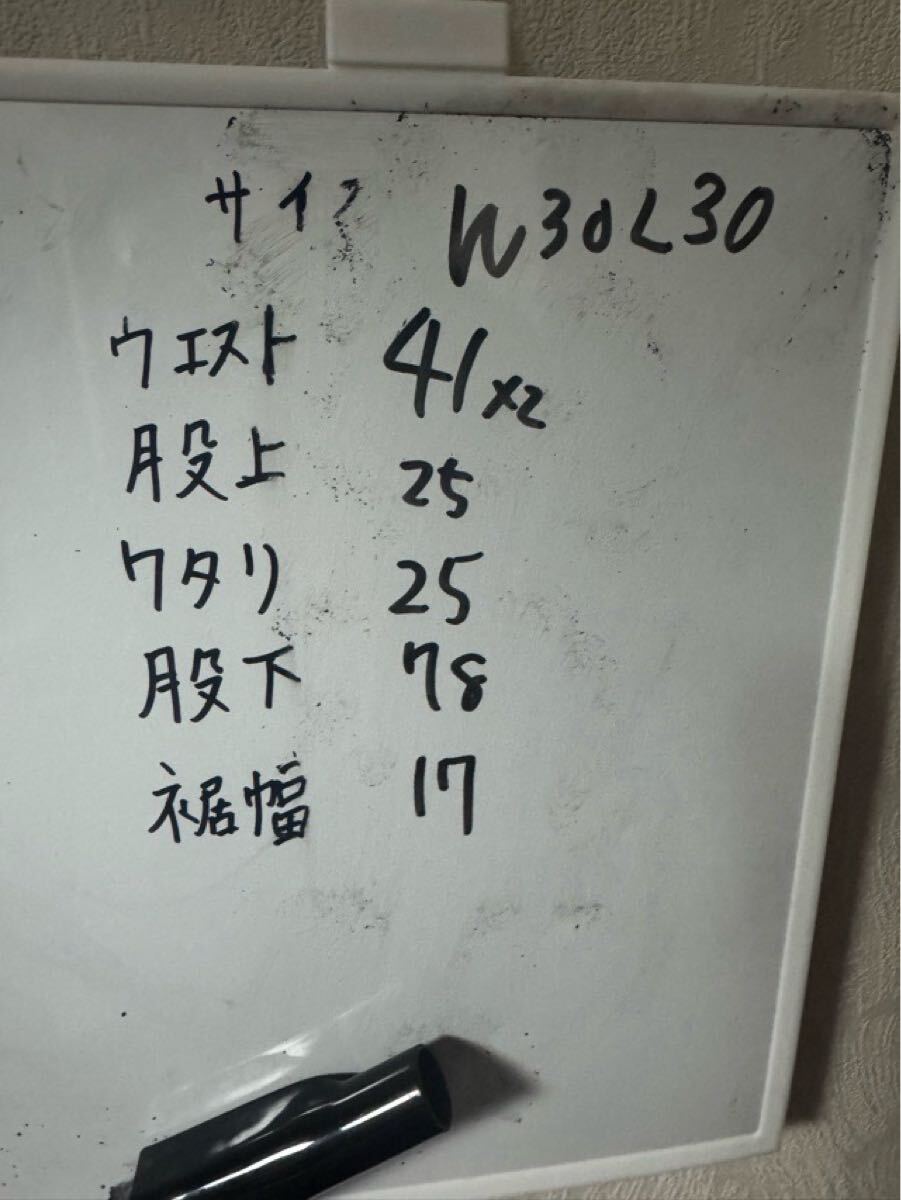 サイズ W30L30
ウエスト 41x2
股上 25
ワタリ 25
股下 78
裾幅 17